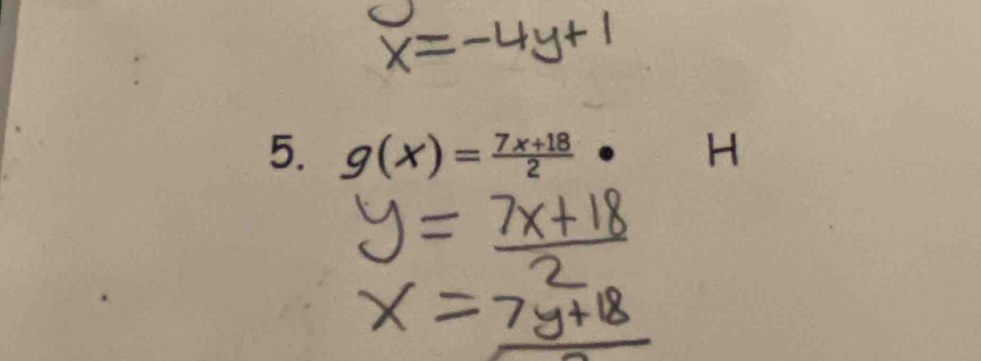 x=-4y+1
5. g(x) = 7x+18/2 • H
y = 7x+18/2
x = 7y+18